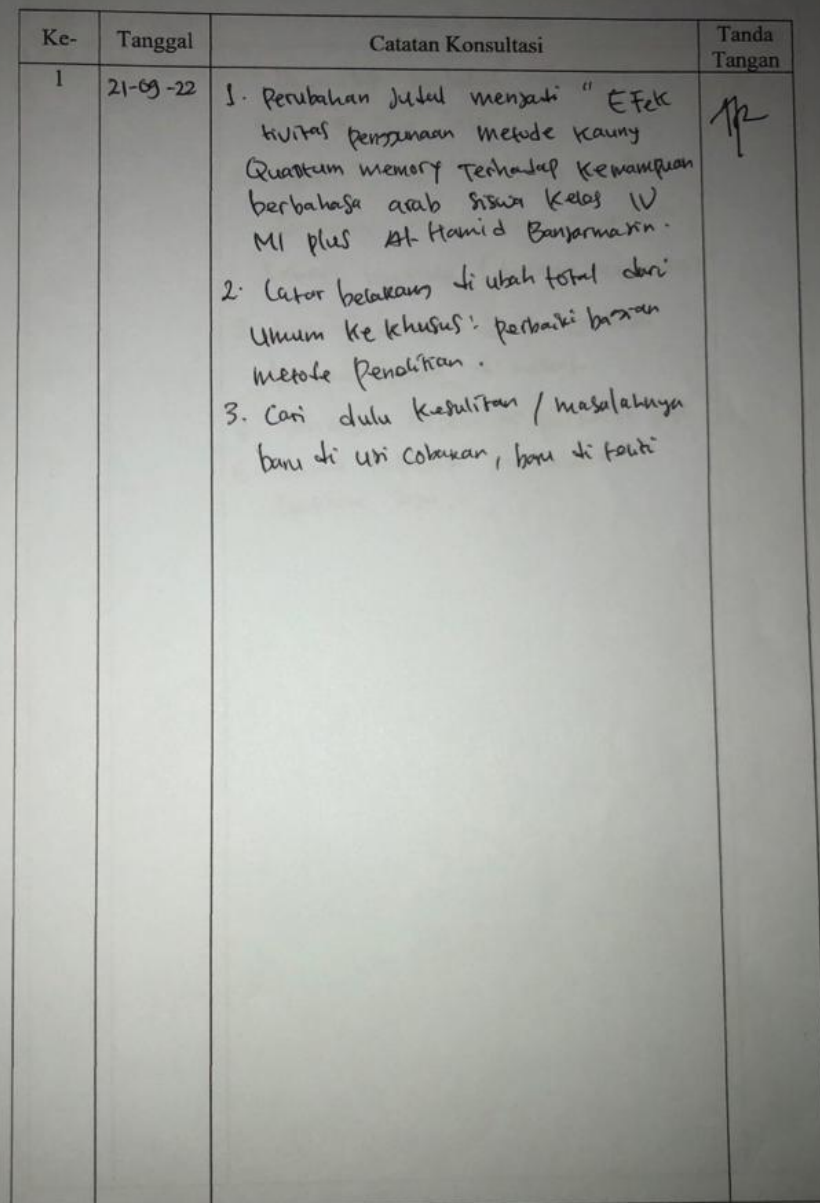 Ke- Tanggal Catatan Konsultasi Tanda Tangan
1 21-09-22 1. Perubahan Judul menjadi " Efek
tivitas penggunaan metode Kauny
Quantum memory Terhadap Kemampuan
berbahasa arab siswa Kelas IV
MI plus Al-Hamid Banjarmasin.
2. Latar belakang di ubah total dari
Umum Ke Khusus: perbaiki bagian
metode Penelitian.
3. Cari dulu Kesulitan / masalahnya
baru di uji cobakan, baru di teliti